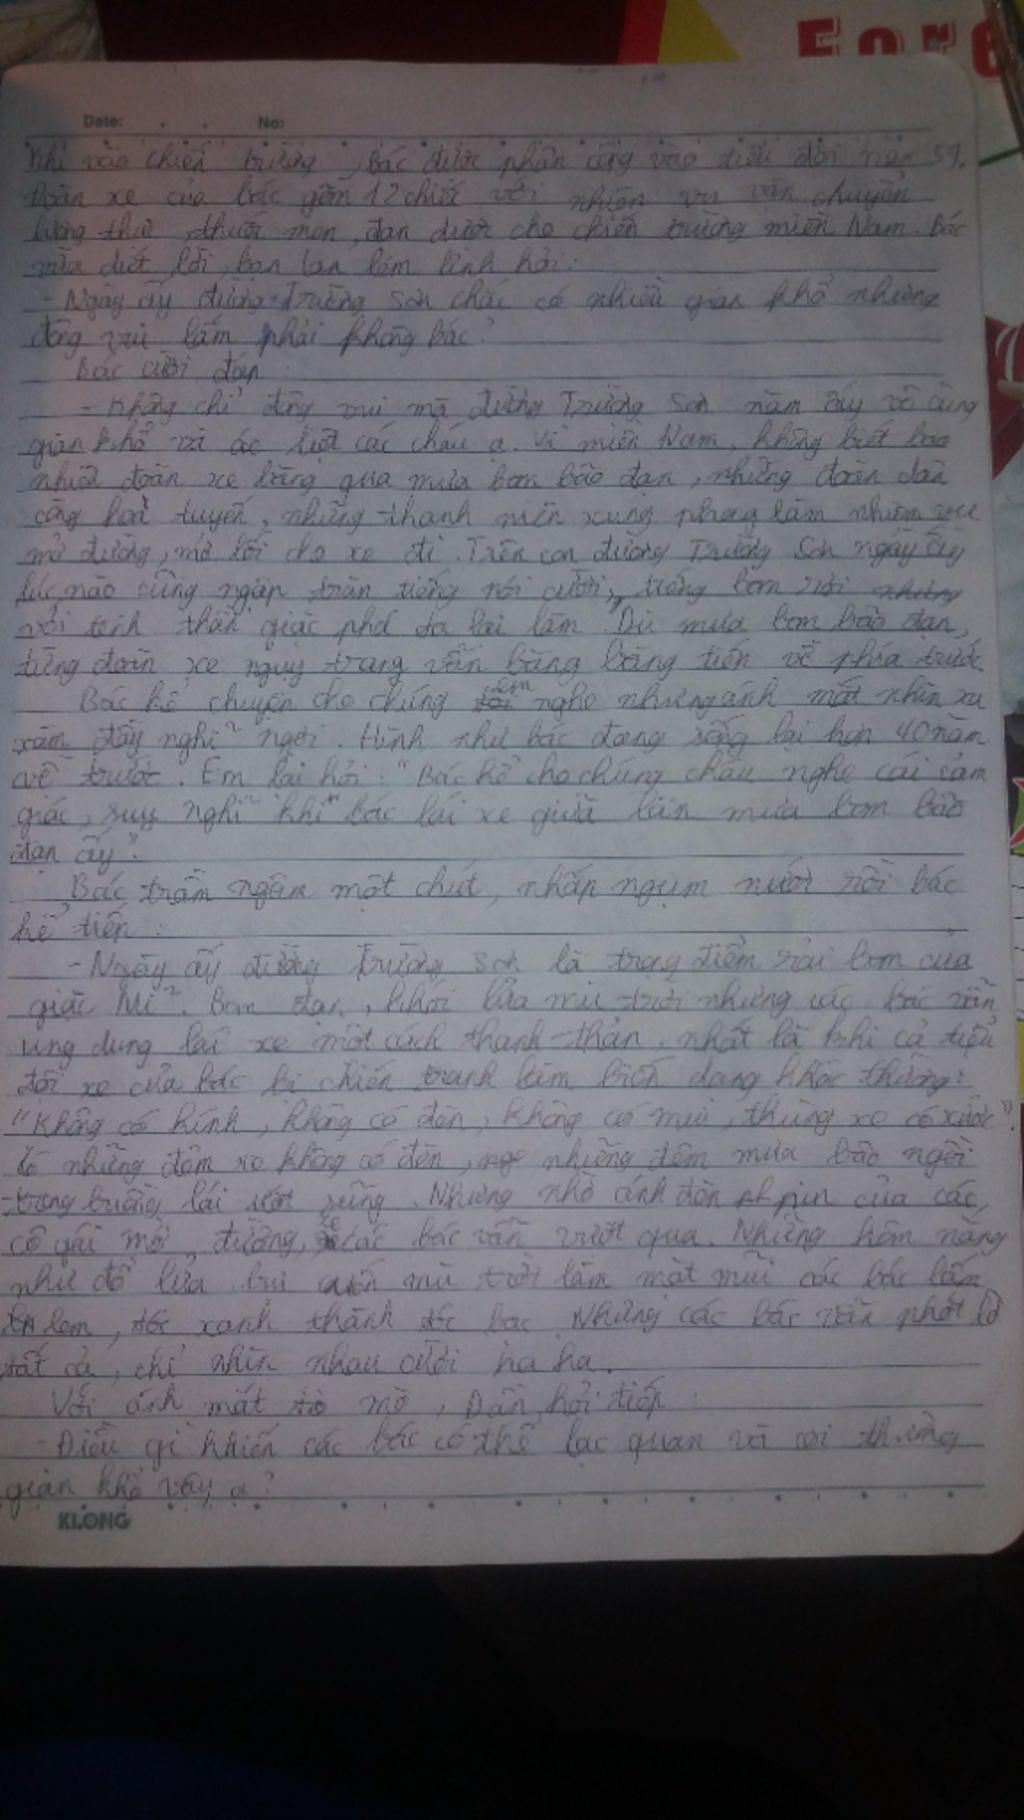 Fore
Date: No:
Khi vào chiến trường, Bác được phân công vào tiểu đội năm 59.
Đoàn xe của bác gồm 12 chiếc với nhiệm vụ vận chuyển
lương thực, thuốc men, đạn dược cho chiến trường miền Nam. Bác
vừa dứt lời, bạn lan lém lỉnh hỏi:
- Ngày ấy đường Trường Sơn chắc có nhiều gian khổ nhưng
đông vui lắm phải không bác?
Bác cười đáp:
- Không chỉ đông vui mà đường Trường Sơn năm ấy vô cùng
gian khổ và ác liệt các cháu ạ. Vì miền Nam, không biết bao
nhiêu đoàn xe băng qua mưa bom bão đạn, những đoàn dân
công hoả tuyến, những thanh niên xung phong làm nhiệm vụ
mở đường, mở lối cho xe đi. Trên con đường Trường Sơn ngày ấy
lúc nào cũng ngập tràn tiếng nói cười, tiếng bom rơi nhưng
với tinh thần giặc phá ta lại làm. Dù mưa bom bão đạn,
từng đoàn xe nguỵ trang vẫn băng băng tiến về phía trước
Bác kể chuyện cho chúng em nghe nhưng ánh mắt nhìn xa
xăm đầy nghĩ ngợi. Hình như bác đang sống lại hơn 40 năm
về trước. Em lại hỏi: "Bác kể cho chúng cháu nghe cái cảm
giác, suy nghĩ khi bác lái xe giữa làn mưa bom bão
đạn ấy".
Bác trầm ngâm một chút, nhấp ngụm nước rồi bác
kể tiếp:
- Ngày ấy đường Trường Sơn là trọng điểm rải bom của
giặc Mĩ. Bom đạn, khói lửa mù trời nhưng các bác vẫn
ung dung lái xe một cách thanh thản, nhất là khi cả tiểu
đội xe của bác bị chiến tranh làm biến dạng khác thường:
"Không có kính, không có đèn, không có mui, thùng xe có xước".
Có những đêm xe không có đèn, những đêm mưa bão ngồi
trong buồng lái ướt sũng. Nhưng nhờ ánh đèn pin của các
cô gái mở đường, các bác vẫn vượt qua. Những hôm nắng
như đổ lửa bụi cuốn mù trời làm mặt mũi các bác lấm
lem, tóc xanh thành tóc bạc. Nhưng các bác vẫn phớt lờ
tất cả, chỉ nhìn nhau cười ha ha.
Với ánh mắt tò mò, Dần hỏi tiếp:
- Điều gì khiến các bác có thể lạc quan và coi thường
gian khổ vậy ạ?
KLONG